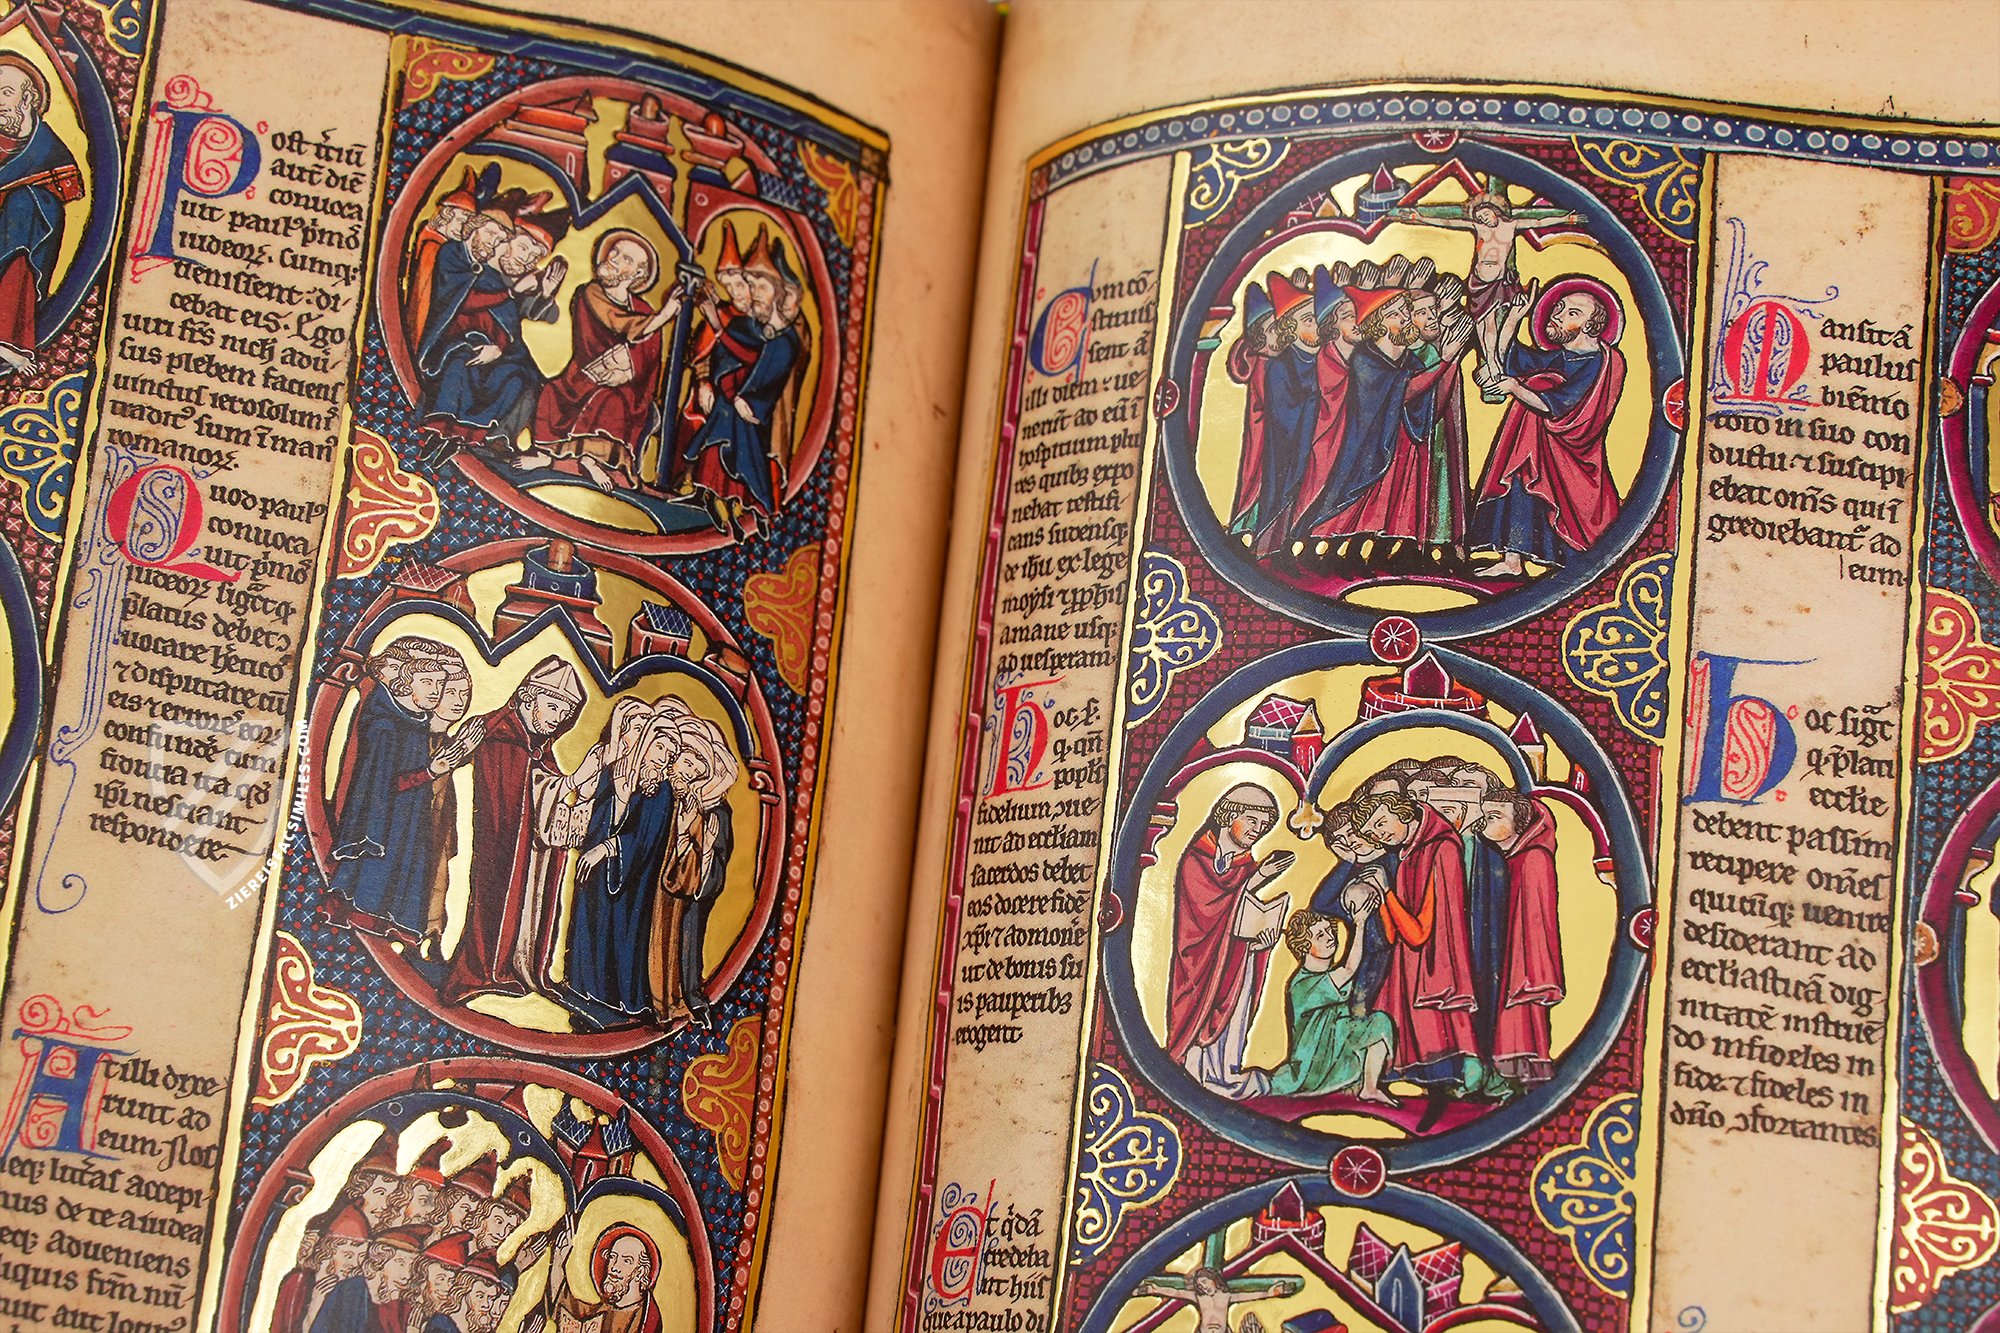 Post t̄ciū
aut̄ diē
conuoca
uit paulꝰ p̄moſ
iudeoꝝ. Cumqꝫ
ueniſſent · di
cebat eis. Ego
uiri fr̄s nich̄ aduꝰ
ſus plebem faciens
uinctus ieroſolimis
traditꝰ ſum ī manꝰ
romanoꝝ.
Quod paulꝰ
conuoca
uit p̄moſ
iudeoꝝ ſigt̄ qꝫ
p̄latus debet ↄ
uocare h̄eticoſ
⁊ diſputare cū
eis ⁊ erroreſ eoꝝ
confundē cum
fiducia ita qd̄
ip̄i neſciant
reſpondere·
At illi dixe
runt ad
eum · Nos
neqꝫ lit̄as accepi
mus de te a iudea
neqꝫ adueniens
aliquis fr̄m nū
Cum cō
ſtituiſ
ſent ā
illi diem · ue
nerūt ad eū ī
hoſpitium plu
res quibꝫ expo
nebat teſtifi
cans ſudenſqꝫ
de ih̄u ex lege
moyſi ⁊ ꝓph̄is
a mane uſqꝫ
ad ueſperam
hoc ſ.
q· qn̄
popl̄s
fidelium ↄue
nit ad eccl̄iam
ſacerdos debet
eos docere fidē
xp̄i ⁊ admonē
ut de bonis ſu
is pauperibꝫ
erogent·
Et q̄dā
credeba
nt hiis
que a paulo di
Manſit ā
paulus
biēnio
toto in ſuo con
ductu · ⁊ ſuſcipi
ebat oms̄ qui ī
grediebant̄ ad
eum·
hoc ſigt̄
q· p̄lati
eccl̄ie
debent paſſim
recipere omneſ
quicūqꝫ uenire
deſiderant ad
eccl̄iaſticā dig
nitatē inſtruē
do infideles in
fide · ⁊ fideles in
dn̄o ↄfortantes
ZIEREISFACSIMILES.COM